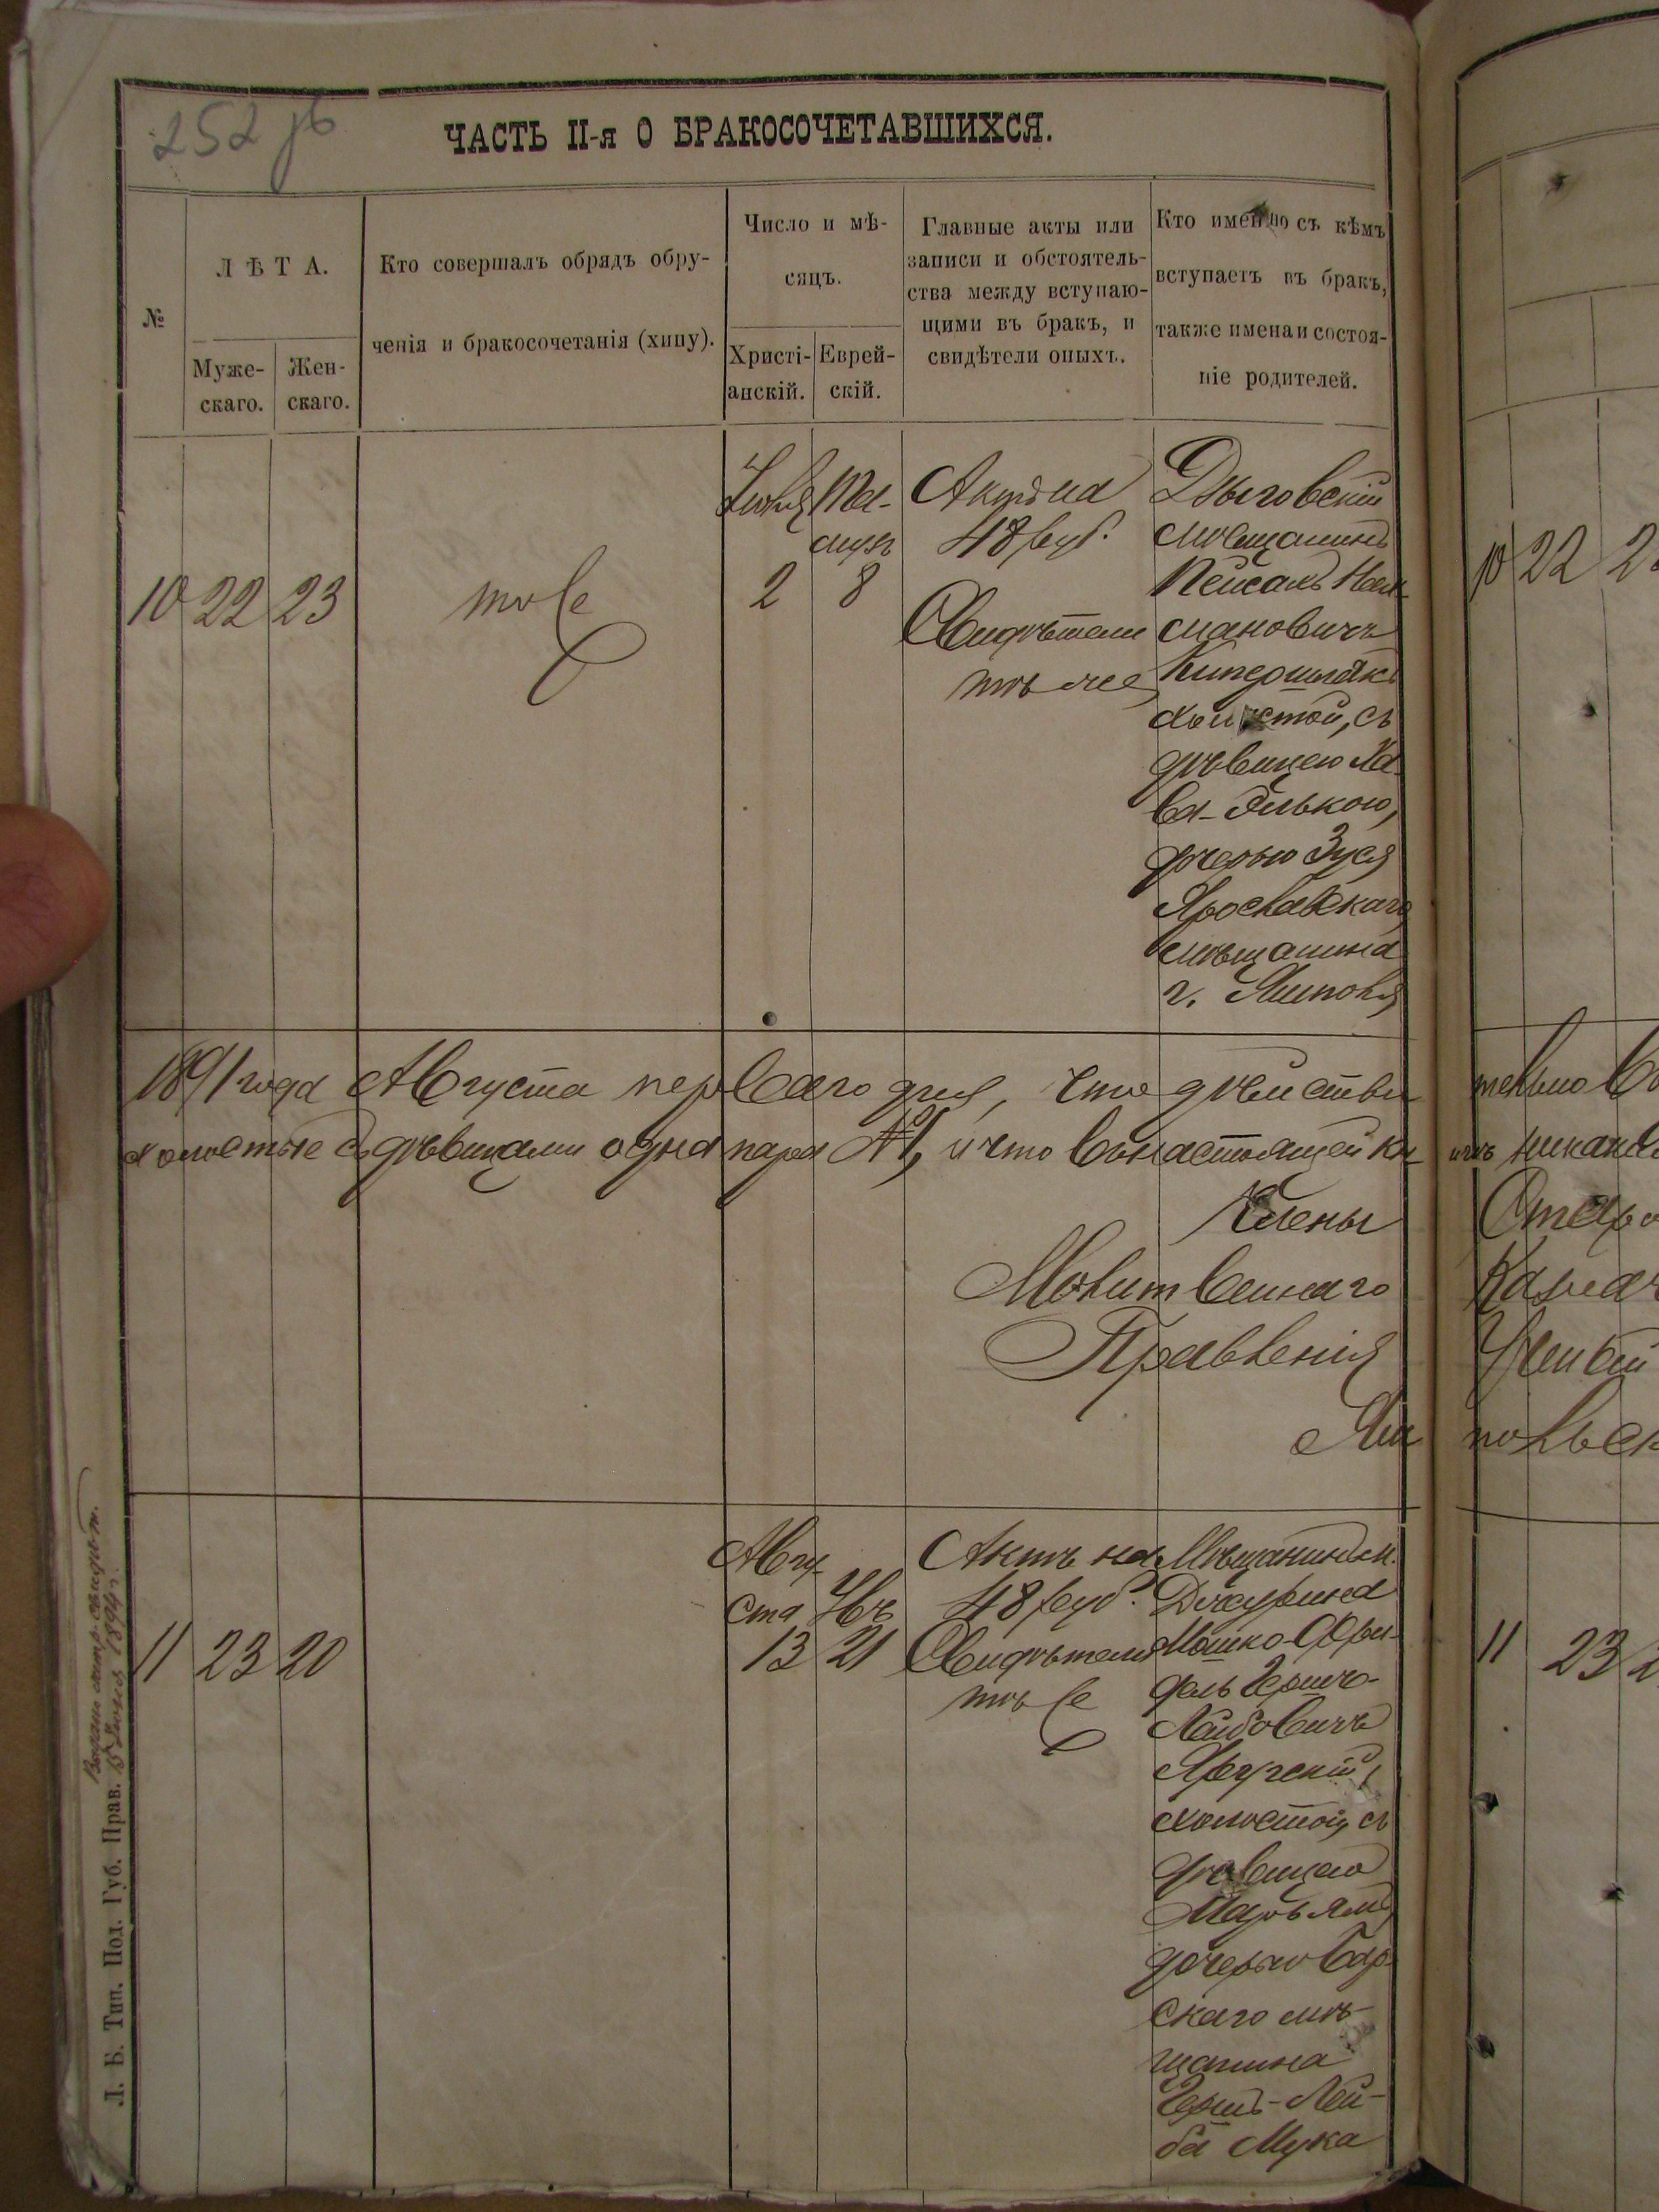 252 зв
ЧАСТЬ II-я О БРАКОСОЧЕТАВШИХСЯ.
№
ЛѢТА.
Муже-
скаго.
Жен-
скаго.
Кто совершалъ обрядъ обру-
ченія и бракосочетанія (хипу).
Число и мѣ-
сяцъ.
Христі-
анскій.
Еврей-
скій.
Главные акты или
записи и обстоятель-
ства между вступаю-
щими въ бракъ, и
свидѣтели оныхъ.
Кто именно съ кѣмъ
вступаетъ въ бракъ,
также имена и состоя-
ніе родителей.
10
22
23
тоже
Іюля
2
Та-
музъ
8
Актъ на
48 руб.
Свидѣтели
тѣ же
Дзыговскій
мѣщанинъ
Пейсахъ Ноях-
мановичъ
холостой, съ
дѣвицею Ха-
ва-Элькою,
дочерью Зуся
Ярославскаго
мѣщанина
г. Ямполя
1891 года Августа перваго дня, что дѣйстви
холостые съ дѣвицами одна пара №1, и что въ настоящей кн
Члены
Молитвеннаго
Правленія
Ям
11
23
20
Авгу-
ста
13
Абъ
21
Актъ на
48 руб.
Свидѣтели
тѣ же
Мѣщанинъ м.
Джурина
Мошко-Фри-
дель Гершко-
Лейбовичъ
Яругскій,
холостой, съ
дѣвицею
Марьям,
дочерью Бар-
скаго мѣ-
щанина
Гершъ-Лей-
ба Мука
10
22
тельно
ихъ никак
Старо
Казнач
Учен
польск
11
23
Л. Б. Тип. Под. Губ. Прав.
15 Іюля 1894 г.